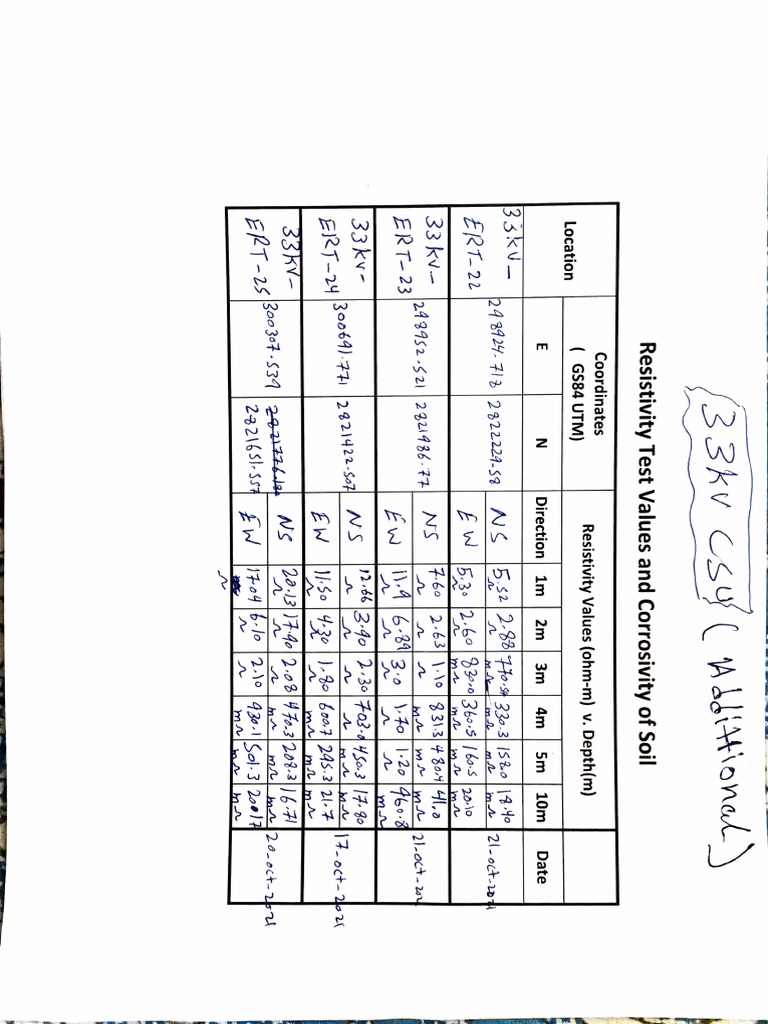 33KV CSU (Additional)
Resistivity Test Values and Corrosivity of Soil
Location Coordinates ( GS84 UTM) Resistivity Values (ohm-m) v. Depth(m) Date
E N Direction 1m 2m 3m 4m 5m 10m
33KV- ERT-22 298924.718 2822229.58 NS 5.52 Ω 2.88 Ω 770.50 mΩ 330.3 mΩ 158.0 mΩ 18.40 mΩ 21-oct-2021
EW 5.30 Ω 2.60 Ω 830.0 mΩ 360.5 mΩ 160.5 mΩ 20.10 mΩ
33KV- ERT-23 298952.521 2821986.77 NS 7.60 Ω 2.63 Ω 1.10 Ω 831.3 mΩ 480.4 mΩ 41.0 mΩ 21-oct-202
EW 11.9 Ω 6.89 Ω 3.0 Ω 1.70 Ω 1.20 Ω 960.8 mΩ
33KV- ERT-24 300691.771 2821422.507 NS 12.66 Ω 3.90 Ω 2.30 Ω 703.0 mΩ 450.3 mΩ 17.80 mΩ 17-oct-2021
EW 11.50 Ω 4.30 Ω 1.80 Ω 600.7 mΩ 245.3 mΩ 21.7 mΩ
33KV- ERT-25 300307.539 2821651.557 NS 20.13 Ω 17.90 Ω 2.08 Ω 470.3 mΩ 208.3 mΩ 16.71 mΩ 20-oct-2021
EW 17.04 Ω 6.10 Ω 2.10 Ω 930.1 mΩ 501.3 mΩ 200.17 mΩ